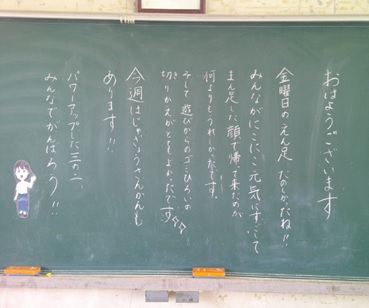 おはようございます
金曜日のえん足 たのしかったね!!
みんながにこにこ元気にすごして
まん足した顔で帰って来たのが
何よりうれしかったです。
そして遊びからのゴミひろいの
切りかえがとてもよかったです
今週はじゅぎょうさんかんも
あります!!
パワーアップした三の二、
みんなでがんばろう!!